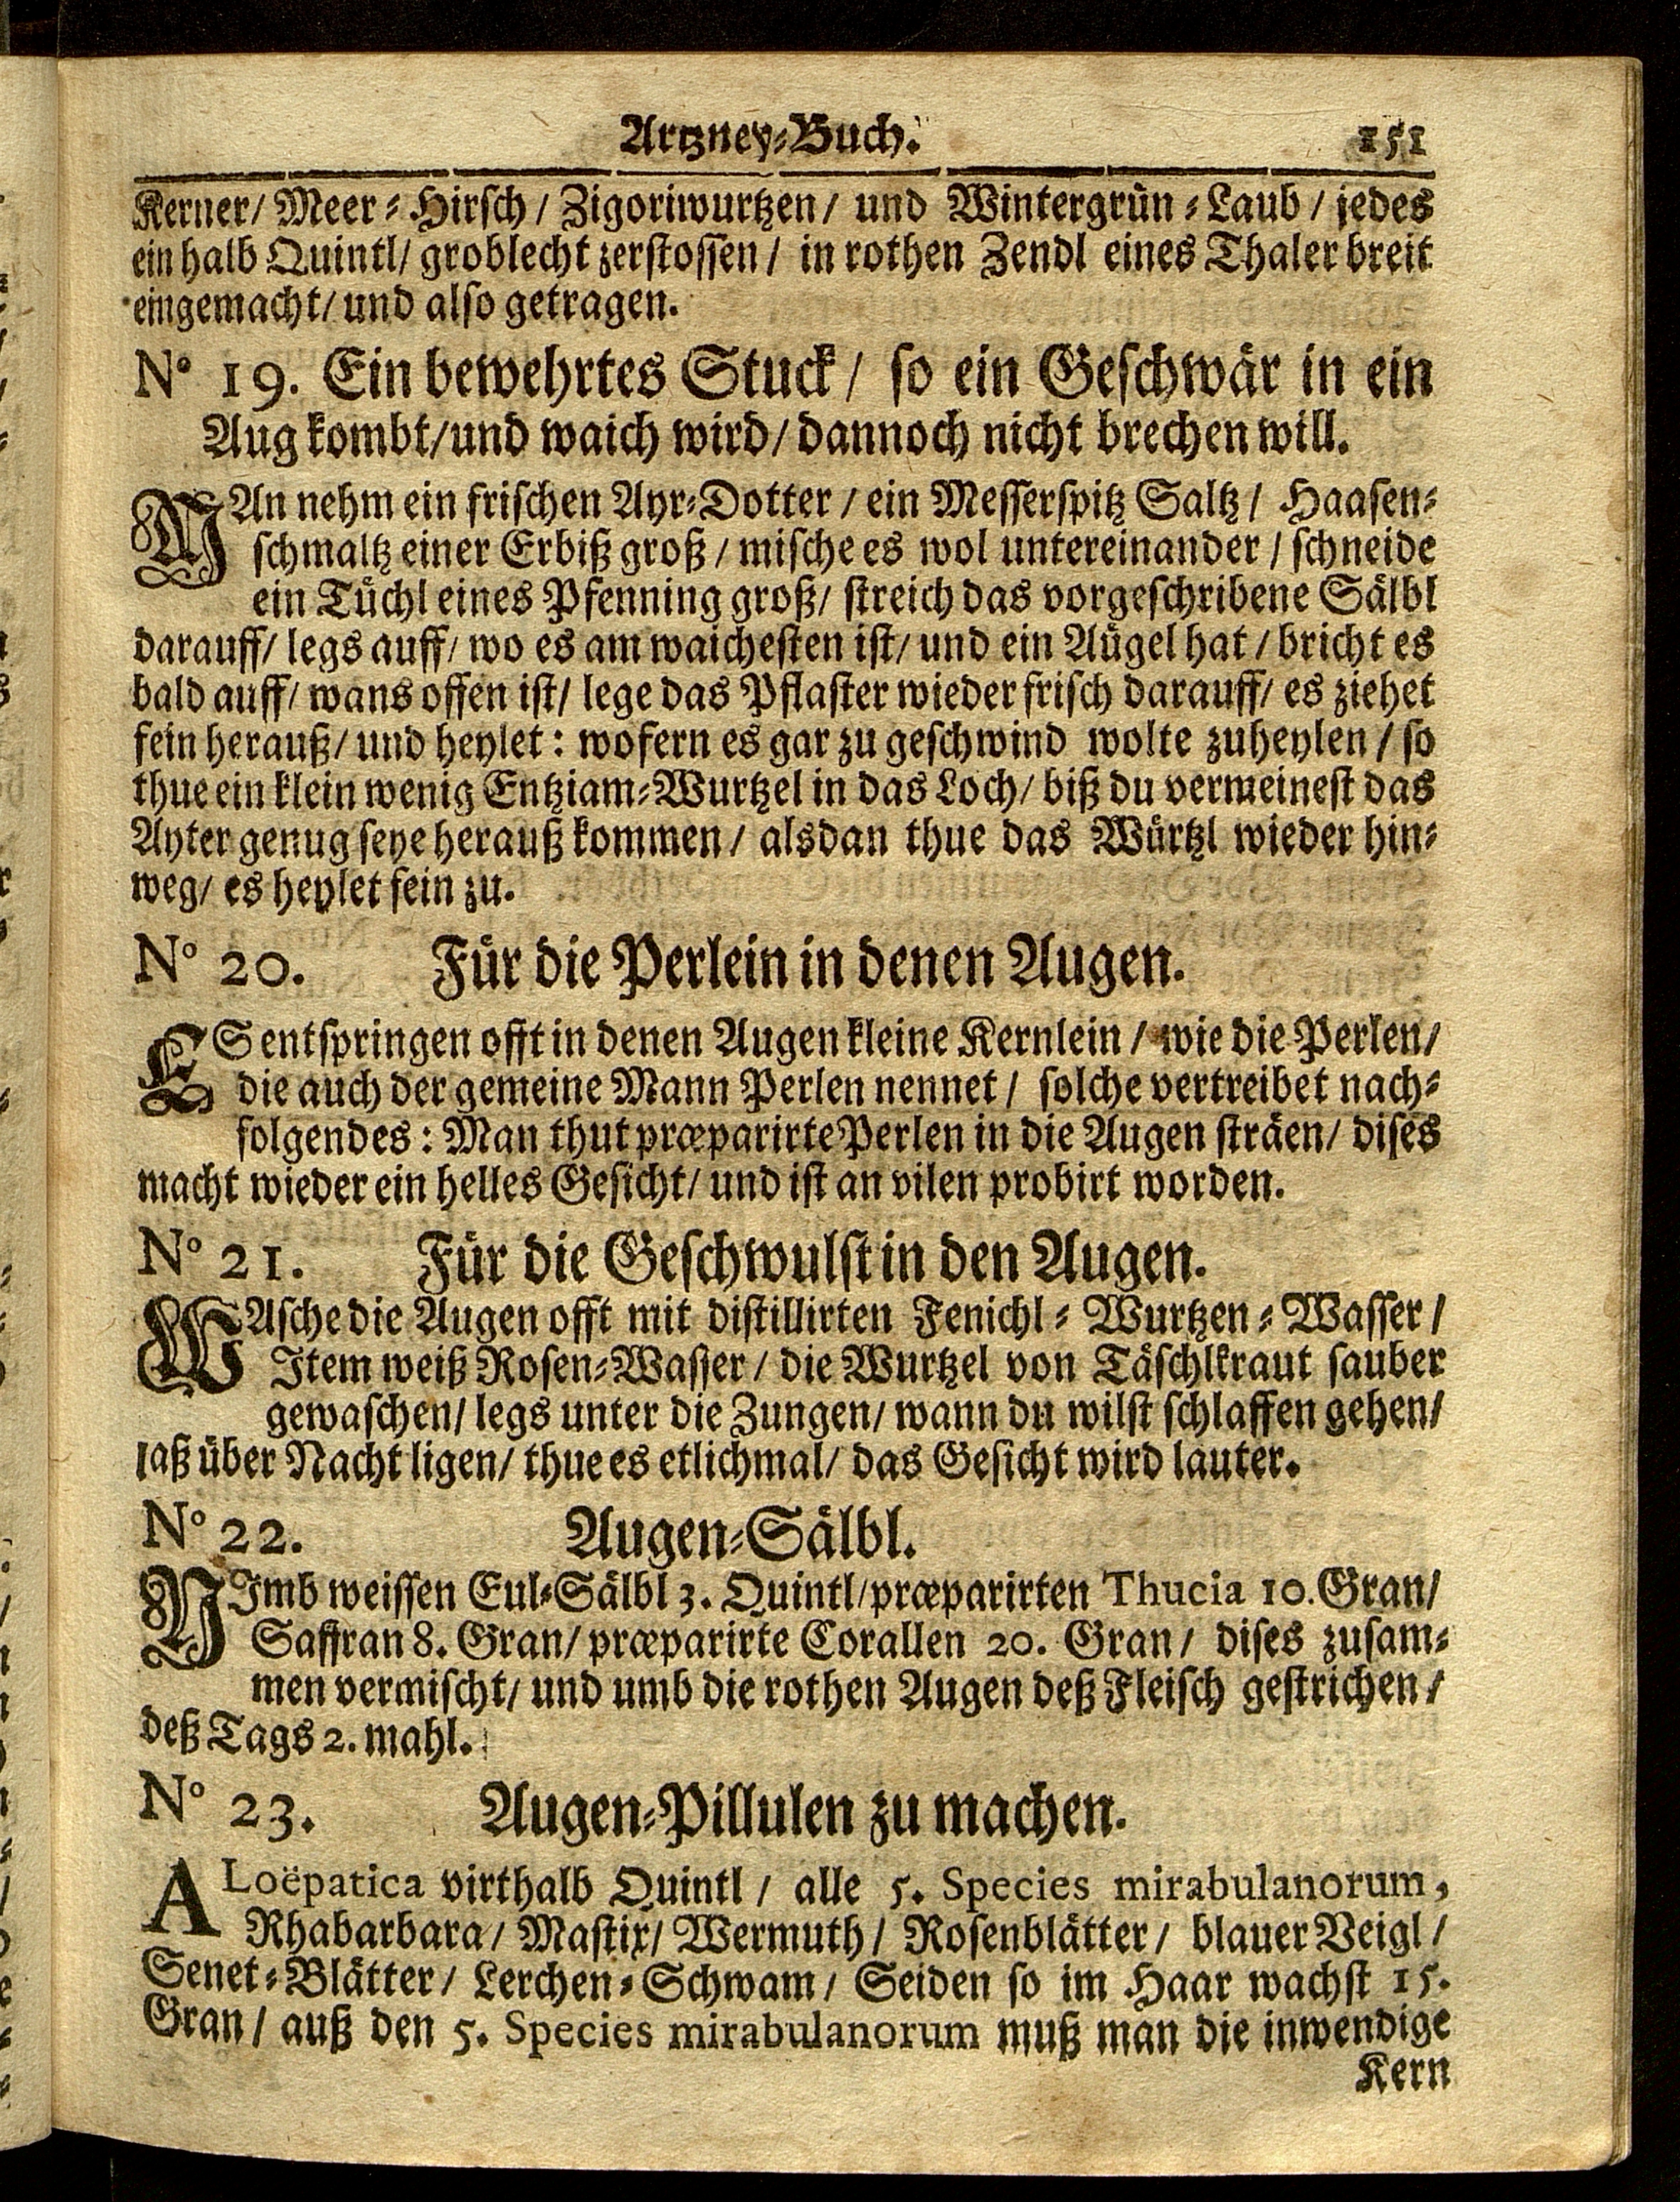 Artzney-Buch. 151
Kerner/ Meer-Hirsch/ Zigoriwurtzen/ und Wintergrün-Laub/ jedes
ein halb Quintl/ groblecht zerstossen/ in rothen Zendl eines Thaler breit
eingemacht/ und also getragen.
N° 19. Ein bewehrtes Stuck/ so ein Geschwär in ein
Aug kombt/ und waich wird/ dannoch nicht brechen will.
MAn nehm ein frischen Ayr-Dotter/ ein Messerspitz Saltz/ Haasen-
schmaltz einer Erbiß groß/ mische es wol untereinander/ schneide
ein Tüchl eines Pfenning groß/ streich das vorgeschribene Sälbl
darauff/ legs auff/ wo es am waichesten ist/ und ein Aügel hat/ bricht es
bald auff/ wans offen ist/ lege das Pflaster wieder frisch darauff/ es ziehet
fein herauß/ und heylet: wofern es gar zu geschwind wolte zuheylen/ so
thue ein klein wenig Entziam-Wurtzel in das Loch/ biß du vermeinest das
Ayter genug seye herauß kommen/ alsdan thue das Würtzl wieder hin-
weg/ es heylet fein zu.
N° 20. Für die Perlein in denen Augen.
ES entspringen offt in denen Augen kleine Kernlein/ wie die Perlen/
die auch der gemeine Mann Perlen nennet/ solche vertreibet nach-
folgendes: Man thut præparirte Perlen in die Augen sträen/ dises
macht wieder ein helles Gesicht/ und ist an vilen probirt worden.
N° 21. Für die Geschwulst in den Augen.
WAsche die Augen offt mit distillirten Fenichl-Wurtzen-Wasser/
Item weiß Rosen-Wasser/ die Wurtzel von Täschlkraut sauber
gewaschen/ legs unter die Zungen/ wann du wilst schlaffen gehen/
laß über Nacht ligen/ thue es etlichmal/ das Gesicht wird lauter.
N° 22. Augen-Sälbl.
NImb weissen Eul-Sälbl 3. Quintl/ præparirten Thucia 10. Gran/
Saffran 8. Gran/ præparirte Corallen 20. Gran/ dises zusam-
men vermischt/ und umb die rothen Augen deß Fleisch gestrichen/
deß Tags 2. mahl.
N° 23. Augen-Pillulen zu machen.
ALoëpatica virthalb Quintl/ alle 5. Species mirabulanorum,
Rhabarbara/ Mastix/ Wermuth/ Rosenblätter/ blauer Veigl/
Senet-Blätter/ Lerchen-Schwam/ Seiden so im Haar wachst 15.
Gran/ auß den 5. Species mirabulanorum muß man die inwendige
Kern